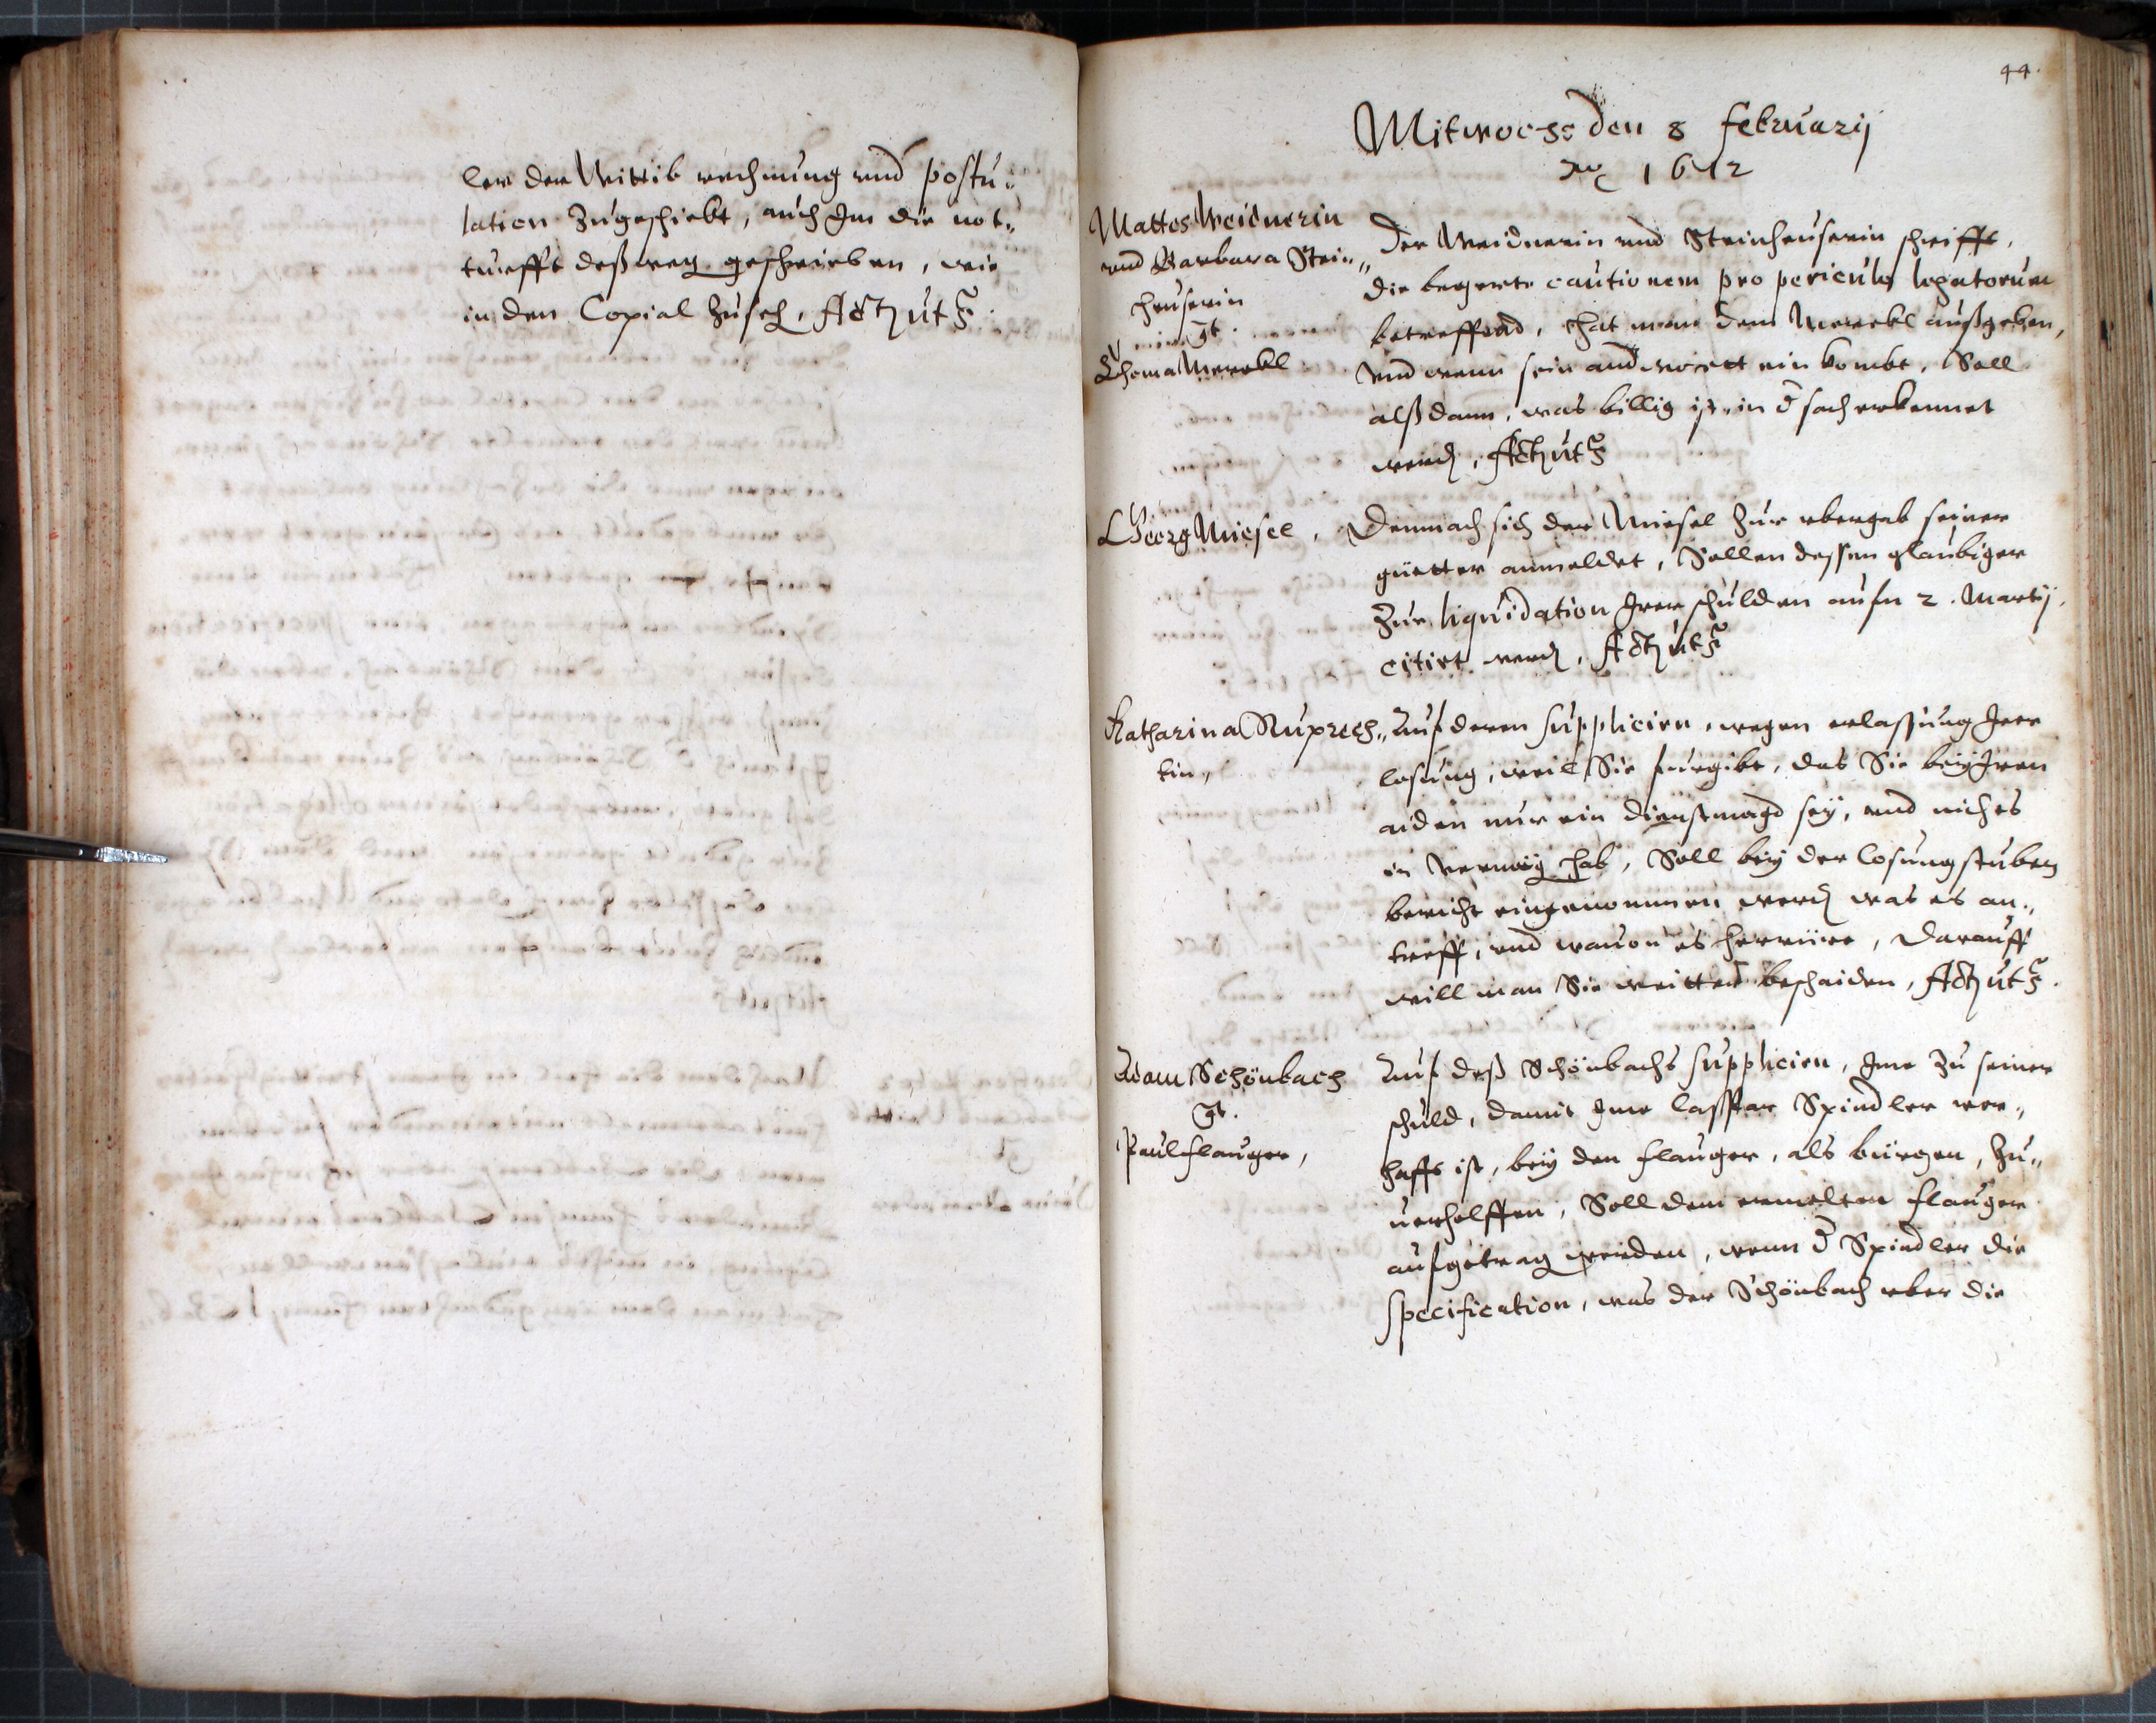 ler der Wittib rechnung vnd postu„
lation zugeschickt, auch Im die not„
turfft deßweg geschrieben, wie
in den Copial zuseh, Act ut s
44.
Mitwochs den 8 februarij
Ao 1612
Mattes Weidnerin
vnd Barbara Stein„
heuserin
Ct.
Thoma Merckl
Der Weidnerin vnd Steinheuserin schrifft,
die begerte cautionem pro periculo legatorum
betreffend, hat man dem Merckl außgeben,
vnd wenn sein andwortt ein kombt, Soll
alßdann, was billig ist, in d sach erkennet
werd, Act ut s
Georg Miesel,
Demnach sich der Miesel zur vbergab seiner
güetter anmeldet, Sollen dessen glaubiger
zur liquidation Irer schulden aufn 2. Martij
citirt werd, Act ut s
Katharina Ruprech„
tin„
Auf deren suppliciren, wegen erlassung Irer
losung, weil Sie furgibt, das Sie bey Iren
aiden nur ein dienstmagd sey, vnd nichts
in vermög hab, Soll bey der losungstuben
bericht eingenommen werd was es an„
treff, vnd wauon es herrüre, darauff
will man Sie weitter beschaiden, Act ut s.
Adam Schönbach
Ct.
Paul flauger,
Auf deß Schönbachs suppliciren, Ime zu seiner
schuld, damit Ime Casspar Spindler ver„
hafft ist, bey den flauger, als bürgen, zu„
uerhelffen, Soll dem ermelten flauger
aufgetrag werden, wenn d Spindler die
specification, was der Schönbach vber die